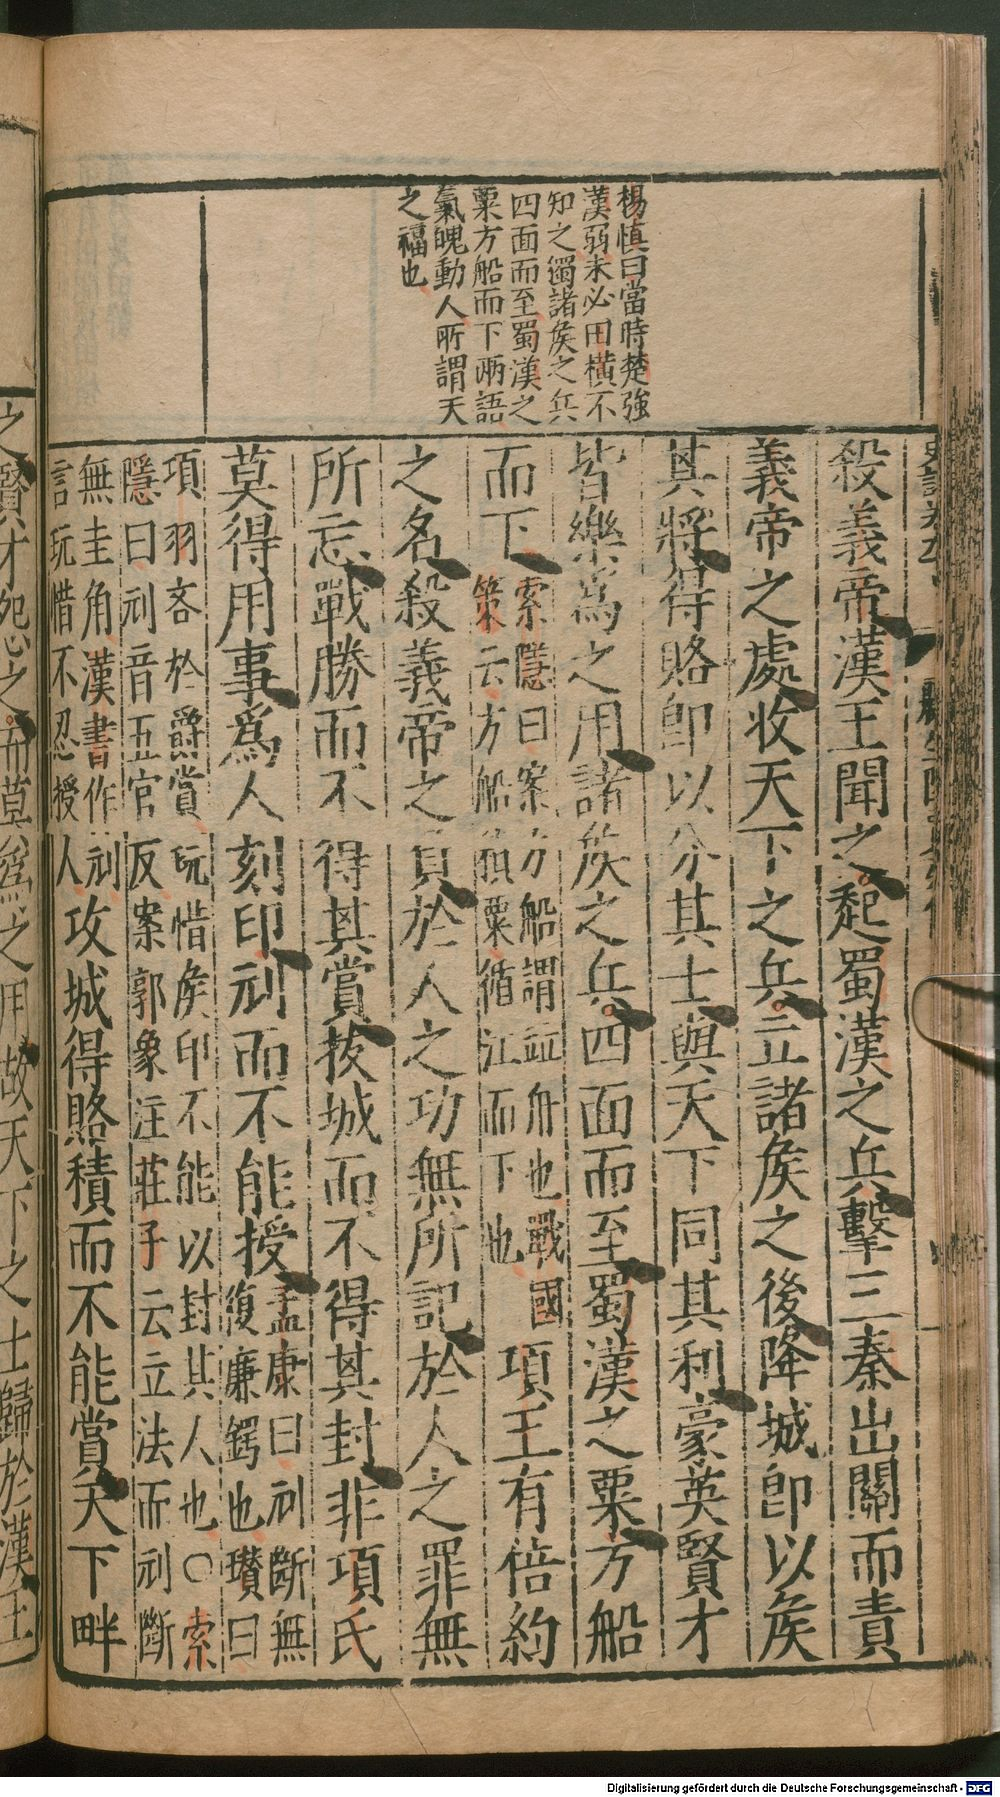 楊慎曰當時楚強
漢弱未必田橫不
知之獨諸矦之兵
四面而至蜀漢之
粟方船而下兩語
氣魄動人所謂天
之福也
殺義帝漢王聞之起蜀漢之兵擊三秦出關而責
義帝之處收天下之兵立諸矦之後降城卽以矦
其將得賂卽以分其士與天下同其利豪英賢才
皆樂爲之用諸矦之兵四面而至蜀漢之粟方船
而下
索隱曰案方船謂竝舟也戰國
策云方船積粟循江而下也
項王有倍約
之名殺義帝之負於人之功無所記於人之罪無
所忘戰勝而不得其賞拔城而不得其封非項氏
莫得用事爲人刻印刓而不能授
孟康曰刓斷無
復廉鍔也瓚曰
項羽吝於爵賞玩惜矦印不能以封其人也○索
隱曰刓音五官反案郭象注莊子云立法而刓斷
無圭角漢書作刓
言玩惜不忍授人
攻城得賂積而不能賞天下畔
之賢才怨之而莫爲之用故天下之士歸於漢王
Digitalisierung gefördert durch die Deutsche Forschungsgemeinschaft - DFG